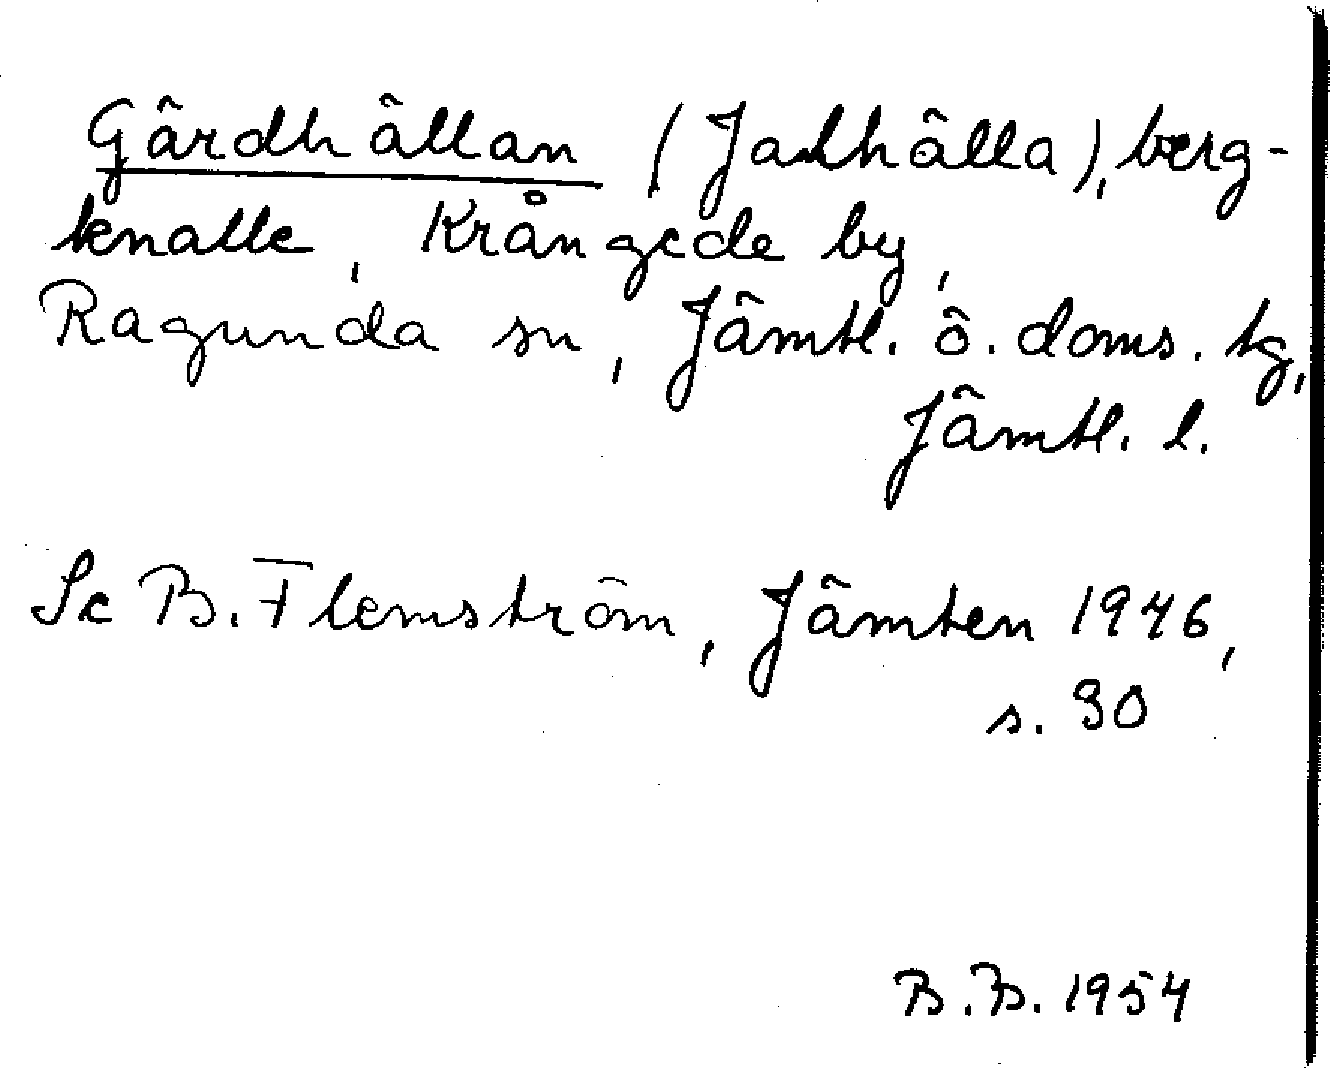 Gärdhällan (Jalhälla), berg-
knalle, Krångede by,
Ragunda sn, Jämtl. ö. doms. tg,
Jämtl. l.
Se B. Flemström, Jämten 1946,
s. 30
B.B. 1954